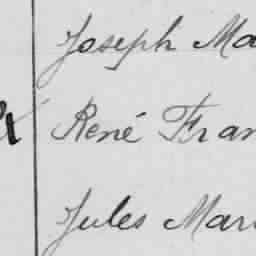 Joseph Ma
René Fran
Jules Mar